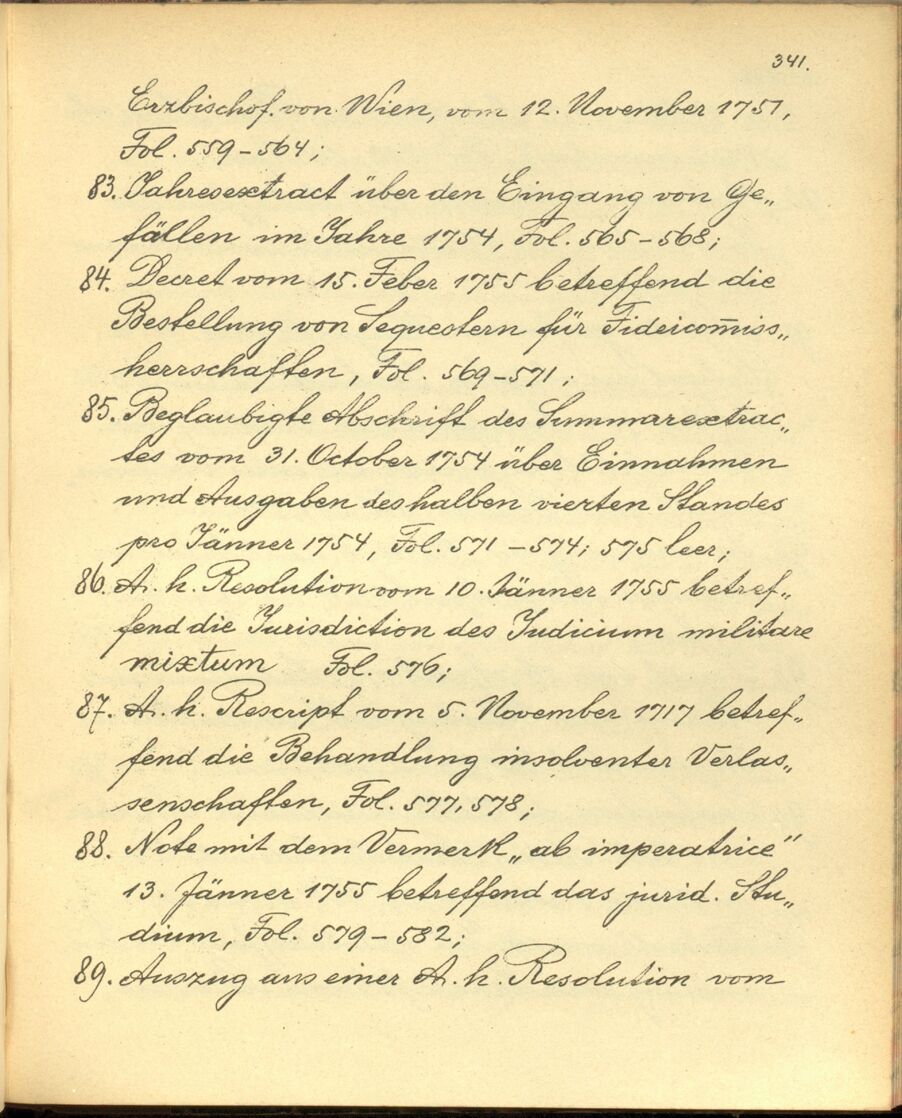 341.
Erzbischof. von Wien, vom 12. November 1751,
Fol. 559-564;
83. Jahresextract über den Eingang von Ge„
fällen im Jahre 1754, Fol. 565-568;
84. Decret vom 15. Feber 1755 betreffend die
Bestellung von Sequestern für Fideicom̅iss„
herrschaften, Fol. 569-571;
85. Beglaubigte Abschrift des Summarextrac„
tes vom 31. October 1754 über Einnahmen
und Ausgaben des halben vierten Standes
pro Jänner 1754, Fol. 571-574; 575 leer;
86. A. h. Resolution vom 10. Jänner 1755 betref„
fend die Jurisdiction des Judicium militare
mixtum Fol. 576;
87. A. h. Rescript vom 5. November 1717 betref„
fend die Behandlung insolventer Verlas„
senschaften, Fol. 577, 578;
88. Note mit dem Vermerk „ab imperatrice"
13. Jänner 1755 betreffend das jurid. Stu„
dium, Fol. 579-582;
89. Auszug aus einer A. h. Resolution vom